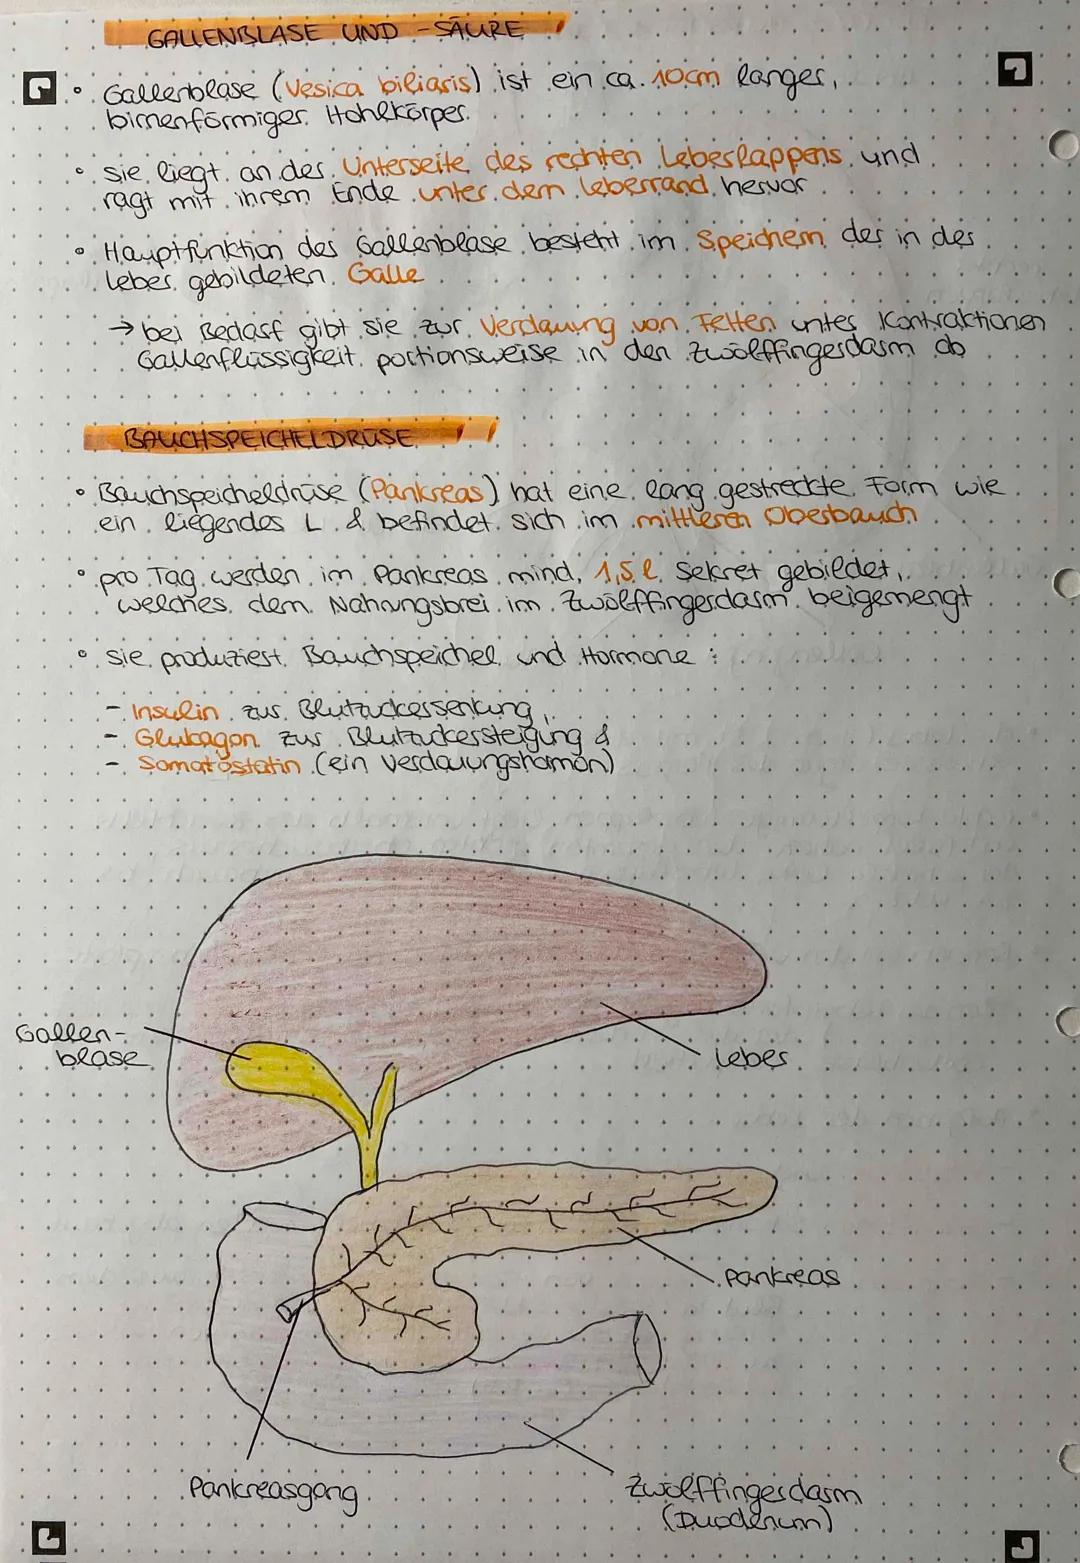 GALLENBLASE UND -SÄURE
• Gallenblase (Vesica biliaris) ist ein ca. 10cm langer,
birnenförmiger Hohlkörper.
• sie liegt an der Unterseite des rechten Leberlappens und
ragt mit ihrem Ende unter dem Leberrand hervor
• Hauptfunktion der Gallenblase besteht im Speichern der in der
Leber gebildeten Galle
→ bei Bedarf gibt sie zur Verdauung von Fetten unter Kontraktionen
Gallenflüssigkeit portionsweise in den Zwölffingerdarm ab
BAUCHSPEICHELDRÜSE
• Bauchspeicheldrüse (Pankreas) hat eine lang gestreckte Form wie
ein liegendes L & befindet sich im mittleren Oberbauch
• pro Tag werden im Pankreas mind. 1,5 l Sekret gebildet,
welches dem Nahrungsbrei im Zwölffingerdarm beigemengt
• sie produziert Bauchspeichel und Hormone:
- Insulin zur Blutzuckersenkung,
- Glukagon zur Blutzuckersteigung &
- Somatostatin (ein Verdauungshormon)
Gallen-
blase
Leber
Pankreas
Pankreasgang
Zwölffingerdarm
(Duodenum)